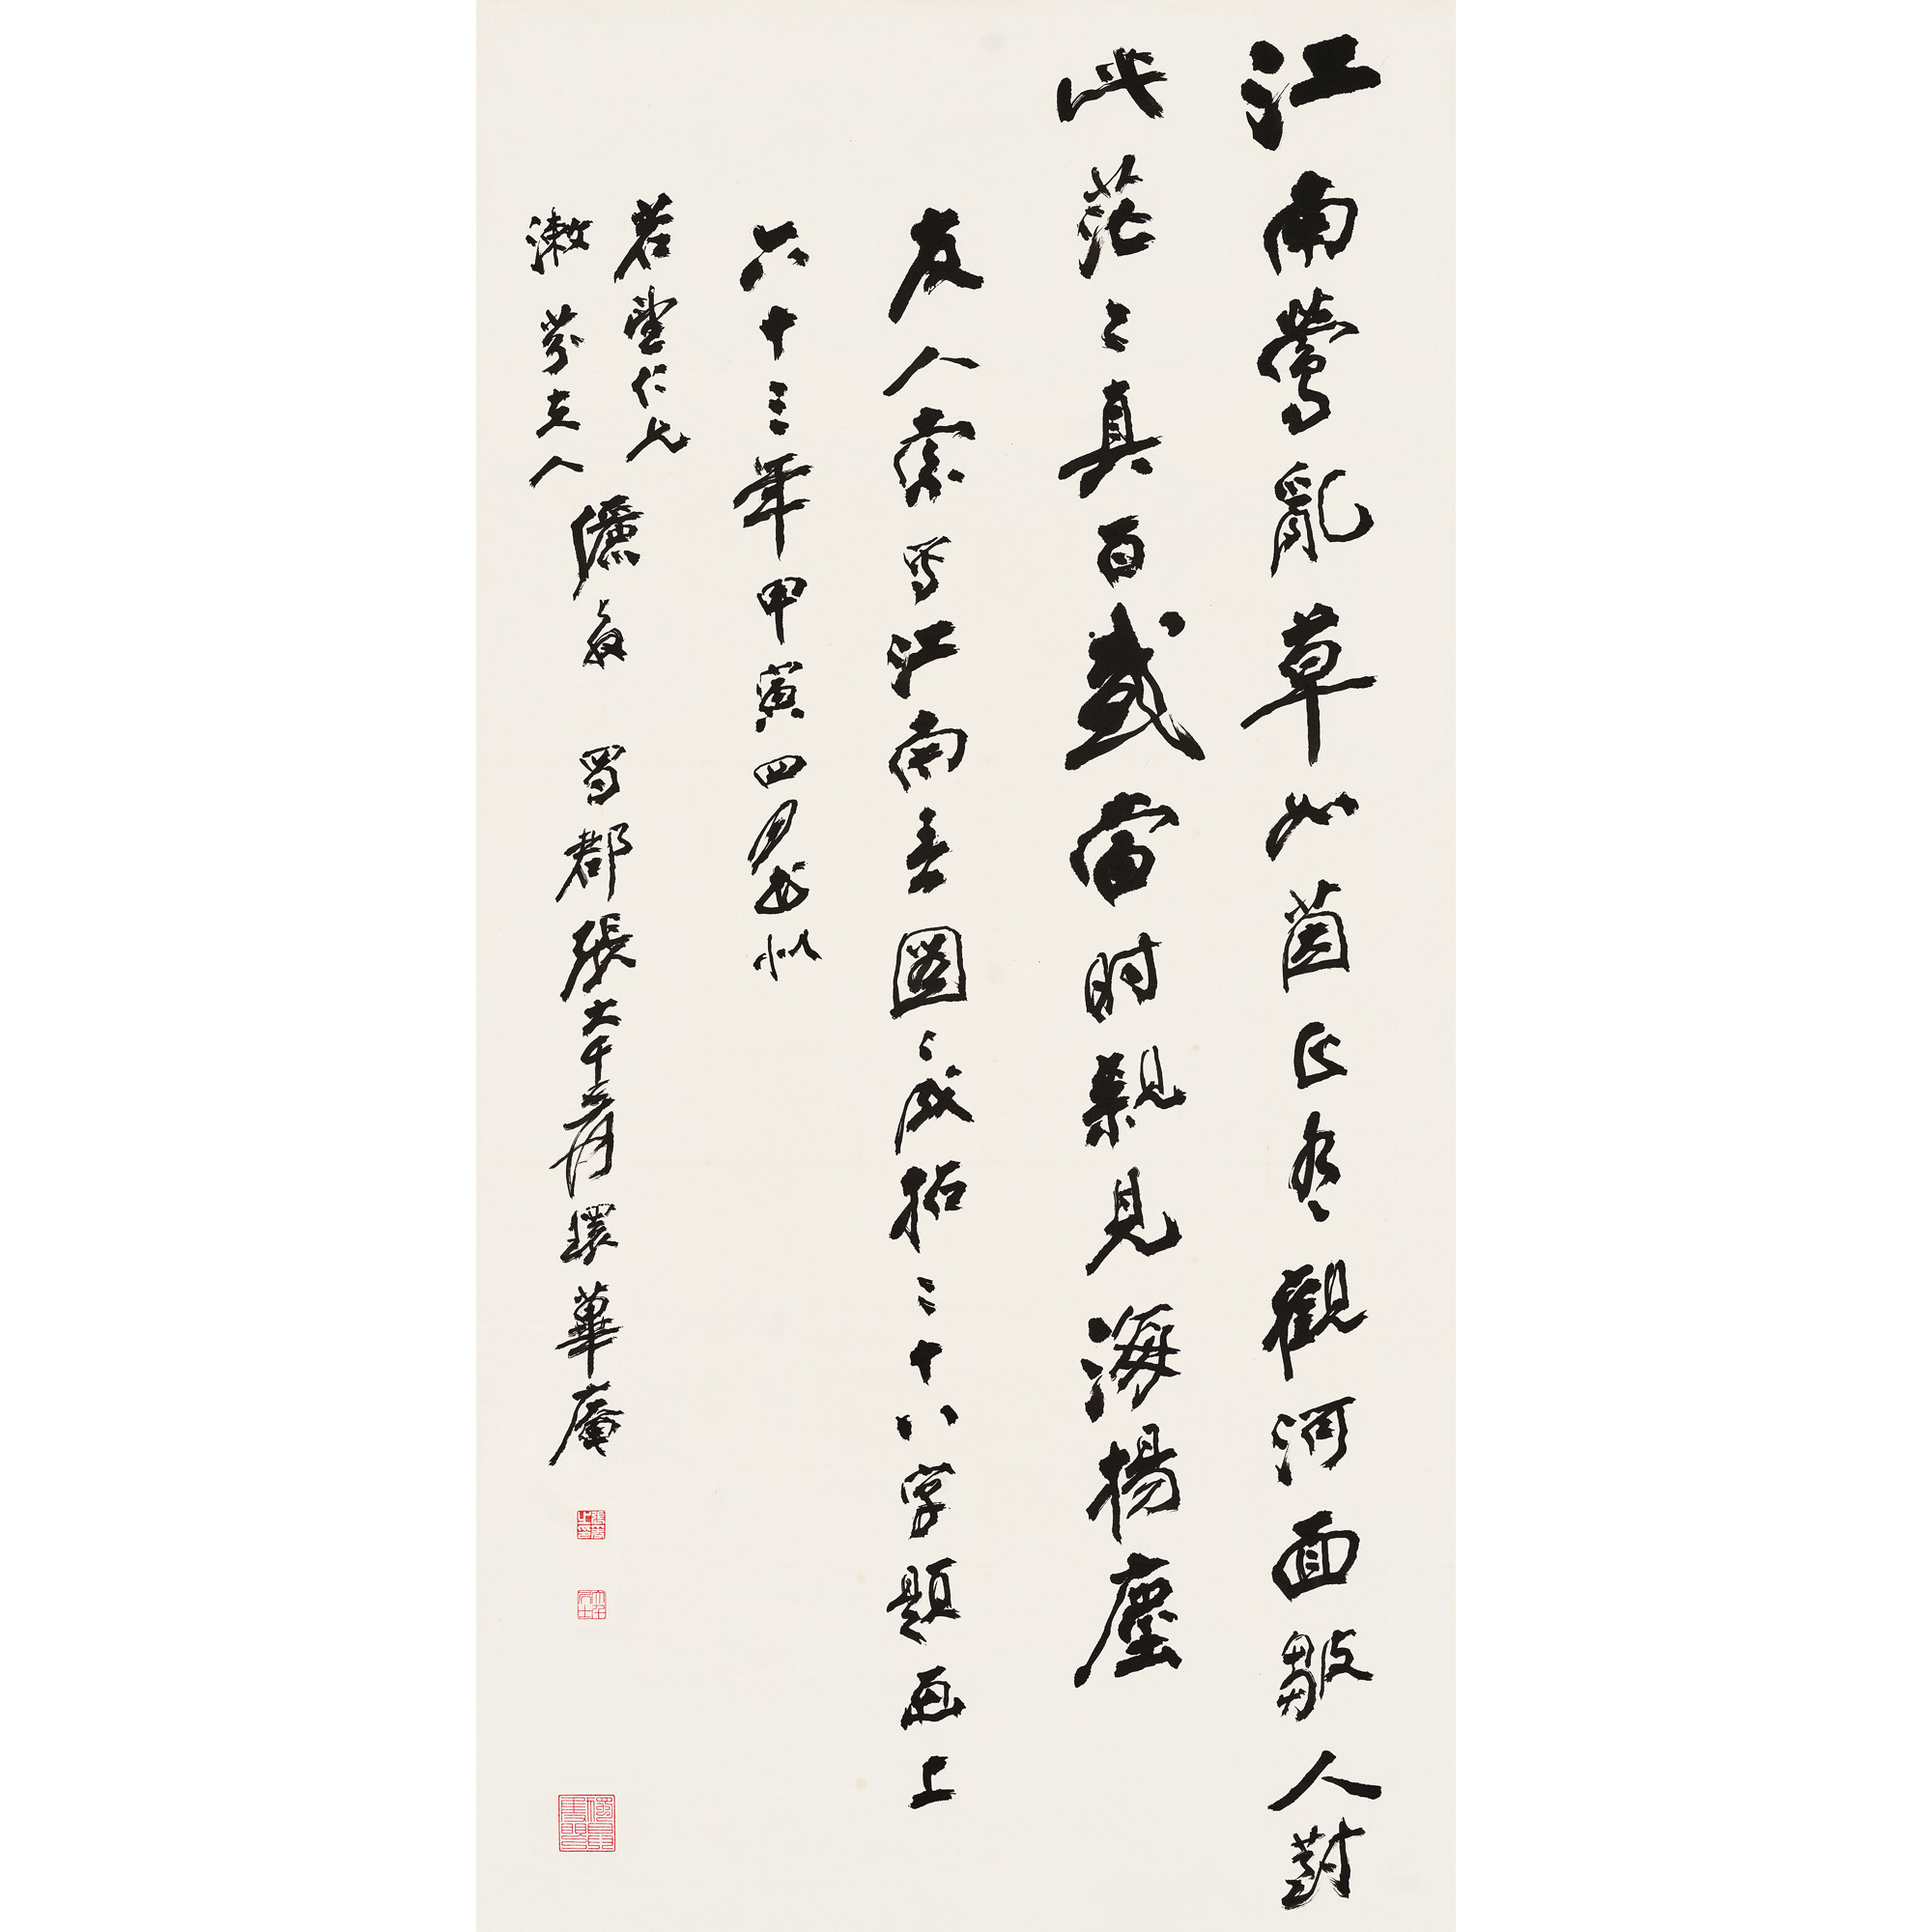 江南鶯亂草如茵正有觀河面皺人對
此茫〻真百感當時親見海揚塵
友人索寫江南春圖〻成拈二十八字題画上
六十三年甲寅四月書似
若仁兄
漱芬夫人
儷教 蜀郡張大千爰環蓽庵
張爰之印
大千居士